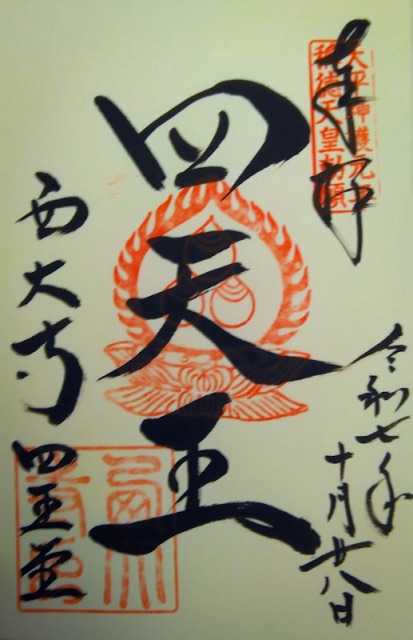 奉拝
天平神護元年
称徳天皇勅願
四天王
令和七年
十月廿八日
西大寺
四王堂